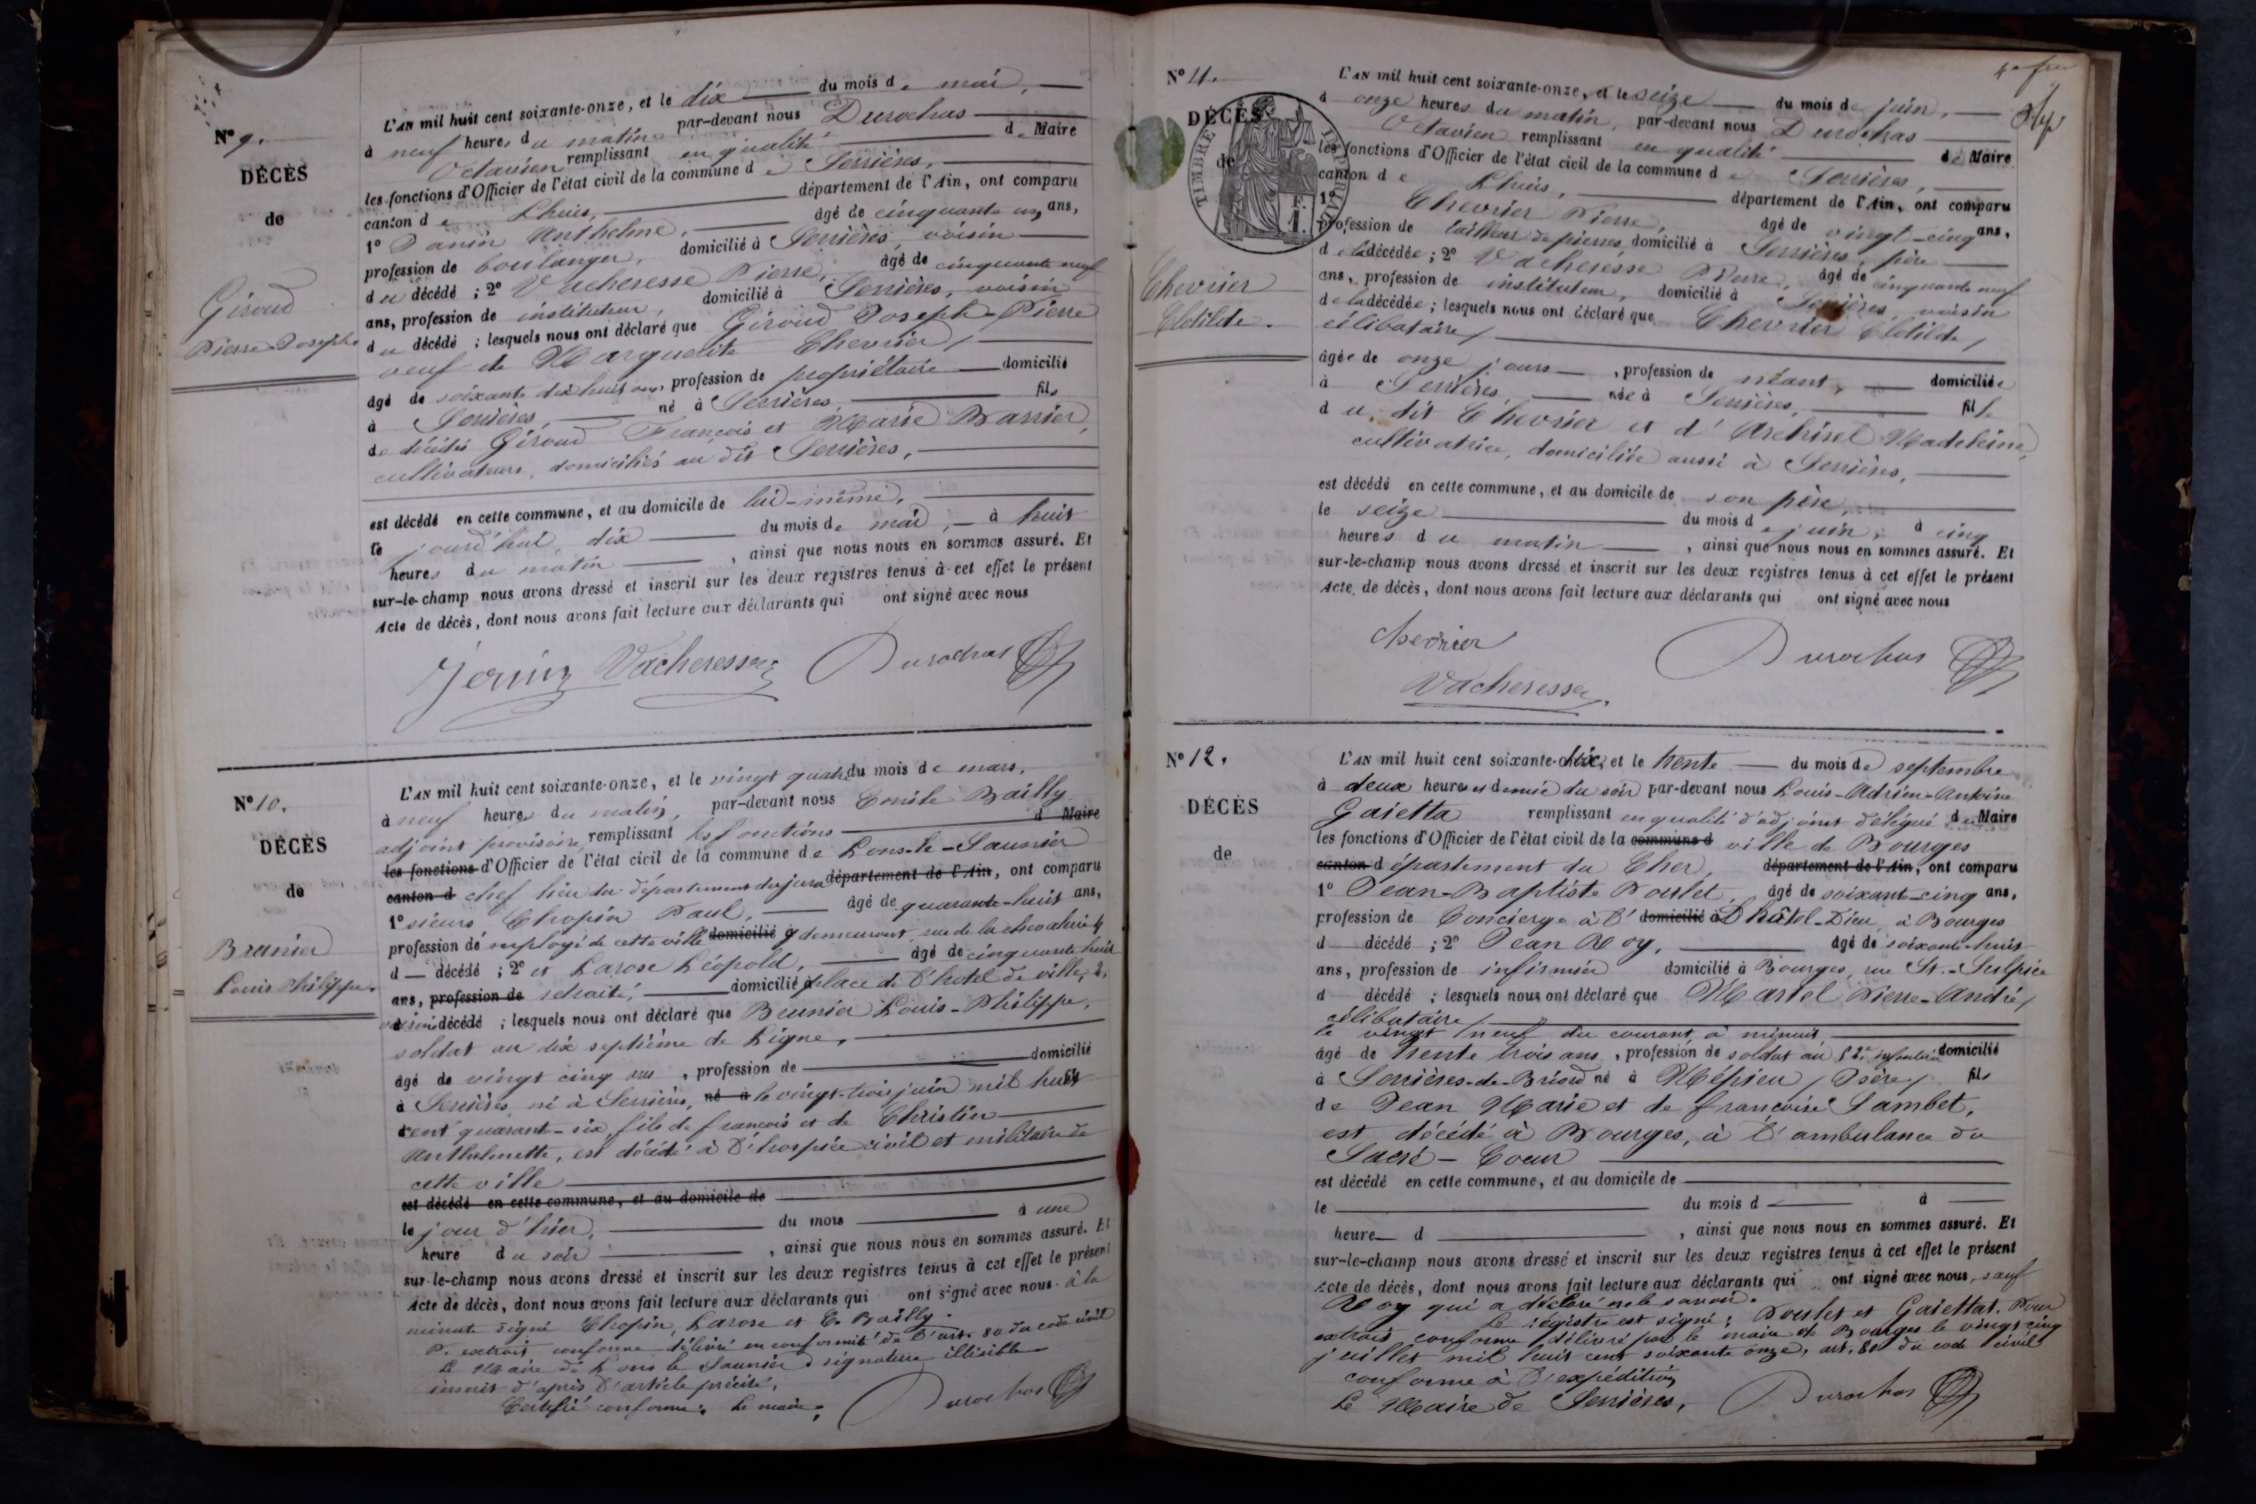 N° 9.
DÉCÈS
de
Giroud
Pierre-Joseph
L'AN mil huit cent soixante-onze, et le dix du mois de mai,
à neuf heures du matin par-devant nous Durochas
Octavien remplissant en qualité de Maire
les fonctions d'Officier de l'état civil de la commune de Serrières,
canton de Lhuis, département de l'Ain, ont comparu
1° Janin Anthelme, âgé de cinquante un ans,
profession de boulanger, domicilié à Serrières, voisin
du décédé ; 2° Vacheresse Pierre, âgé de cinquante neuf
ans, profession de instituteur, domicilié à Serrières, voisin
du décédé ; lesquels nous ont déclaré que Giroud Joseph-Pierre
veuf de Marguerite Chevrier,
âgé de soixante dix huit ans, profession de propriétaire domicilié
à Serrières, né à Serrières, fils
de décédés Giroud François et Marie Barrier,
cultivateurs, domiciliés au dit Serrières,
est décédé en cette commune, et au domicile de lui-même,
le jourd'hui, dix du mois de mai, à huit
heures du matin, ainsi que nous nous en sommes assuré. Et
sur-le-champ nous avons dressé et inscrit sur les deux registres tenus à cet effet le présent
Acte de décès, dont nous avons fait lecture aux déclarants qui ont signé avec nous
Janin Vacheresse Durochas
N° 10.
DÉCÈS
de
Brunier
Louis Philippe.
L'AN mil huit cent soixante-onze, et le vingt quatre du mois de mars,
à neuf heures du matin, par-devant nous Emile Bailly
adjoint provisoire, remplissant les fonctions d Maire
les fonctions d'Officier de l'état civil de la commune de Lons-le-Saunier
canton d chef lieu du département du jura département de l'Ain, ont comparu
1° sieurs Chopin Paul, âgé de quarante-huit ans,
profession d'employé de cette ville domicilié y demeurant, rue de la chevalerie 4
d décédé ; 2° et Larose Léopold, âgé de cinquante huit
ans, profession de retraité, domicilié place de l'hôtel de ville, 2,
voisins décédé ; lesquels nous ont déclaré que Brunier Louis-Philippe,
soldat au dix septième de Ligne,
âgé de vingt cinq ans, profession de domicilié
à Serrières, né à Serrières, né à le vingt-trois juin mil huit
cent quarante-six, fils de françois et de Christin
Anthelmette, est décédé à l'hospice civil et militaire de
cette ville
est décédé en cette commune, et au domicile de
le jour d'hier, du mois à une
heure du soir, ainsi que nous nous en sommes assuré. Et
sur-le-champ nous avons dressé et inscrit sur les deux registres tenus à cet effet le présent
Acte de décès, dont nous avons fait lecture aux déclarants qui ont signé avec nous. à la
minute signé Chopin, Larose et E. Bailly.
Pr extrait conforme délivré en conformité de l'art. 80 du code civil
Le Maire de Lons le Saunier signature illisible
inscrit d'après l'article précité,
Certifié conforme: Le maire, Durochas
N° 11.
DÉCÈS
de
TIMBRE IMPERIAL
Chevrier
Clotilde.
L'AN mil huit cent soixante-onze, et le seize du mois de juin,
à onze heures du matin, par-devant nous Durochas
Octavien remplissant en qualité de Maire
les fonctions d'Officier de l'état civil de la commune de Serrières,
canton de Lhuis, département de l'Ain, ont comparu
1° Chevrier Pierre, âgé de vingt-cinq ans,
profession de tailleur de pierres domicilié à Serrières, père
de la décédée ; 2° Vacheresse Pierre, âgé de cinquante neuf
ans, profession de instituteur, domicilié à Serrières, voisin
de la décédée ; lesquels nous ont déclaré que Chevrier Clotilde,
célibataire,
âgée de onze jours, profession de néant, domiciliée
à Serrières, née à Serrières, fille
du dit Chevrier et d' Madeleine,
cultivatrice, domiciliée aussi à Serrières,
est décédé en cette commune, et au domicile de son père,
le seize du mois de juin, à cinq
heures du matin, ainsi que nous nous en sommes assuré. Et
sur-le-champ nous avons dressé et inscrit sur les deux registres tenus à cet effet le présent
Acte de décès, dont nous avons fait lecture aux déclarants qui ont signé avec nous
chevrier Durochas
Vacheresse
N° 12.
DÉCÈS
de
L'AN mil huit cent soixante-dix, et le trente du mois de septembre
à deux heures et demie du soir par-devant nous Louis-Adrien-Antoine
Gaietta remplissant en qualité d'adjoint délégué du Maire
les fonctions d'Officier de l'état civil de la commune d ville de Bourges
canton d département du Cher, département de l'Ain, ont comparu
1° Jean-Baptiste Poulet, âgé de soixante-cinq ans,
profession de Concierge à l' domicilié à l'hôtel-Dieu, à Bourges
d décédé ; 2° Jean Roy, âgé de soixante-huit
ans, profession de infirmier domicilié à Bourges, rue St.-Sulpice
d décédé ; lesquels nous ont déclaré que Martel Pierre-André,
célibataire,
le vingt neuf du courant, à minuit
âgé de trente trois ans, profession de soldat au infanterie domicilié
à Serrières-de-Briord né à Mépieu, Isère, fils
de Jean Marie et de françoise Lambet,
est décédé à Bourges, à l'ambulance du
Sacré-Coeur
est décédé en cette commune, et au domicile de
le du mois d à
heure d , ainsi que nous nous en sommes assuré. Et
sur-le-champ nous avons dressé et inscrit sur les deux registres tenus à cet effet le présent
Acte de décès, dont nous avons fait lecture aux déclarants qui ont signé avec nous, sauf
Roy qui a déclaré ne le savoir.
Le registre est signé: Poulet et Gaiettat. Pour
extrait conforme délivré par le maire de Bourges le vingt cinq
juillet mil huit cent soixante onze, art. 80 du code civil
conforme à l'expédition
Le Maire de Serrières, Durochas